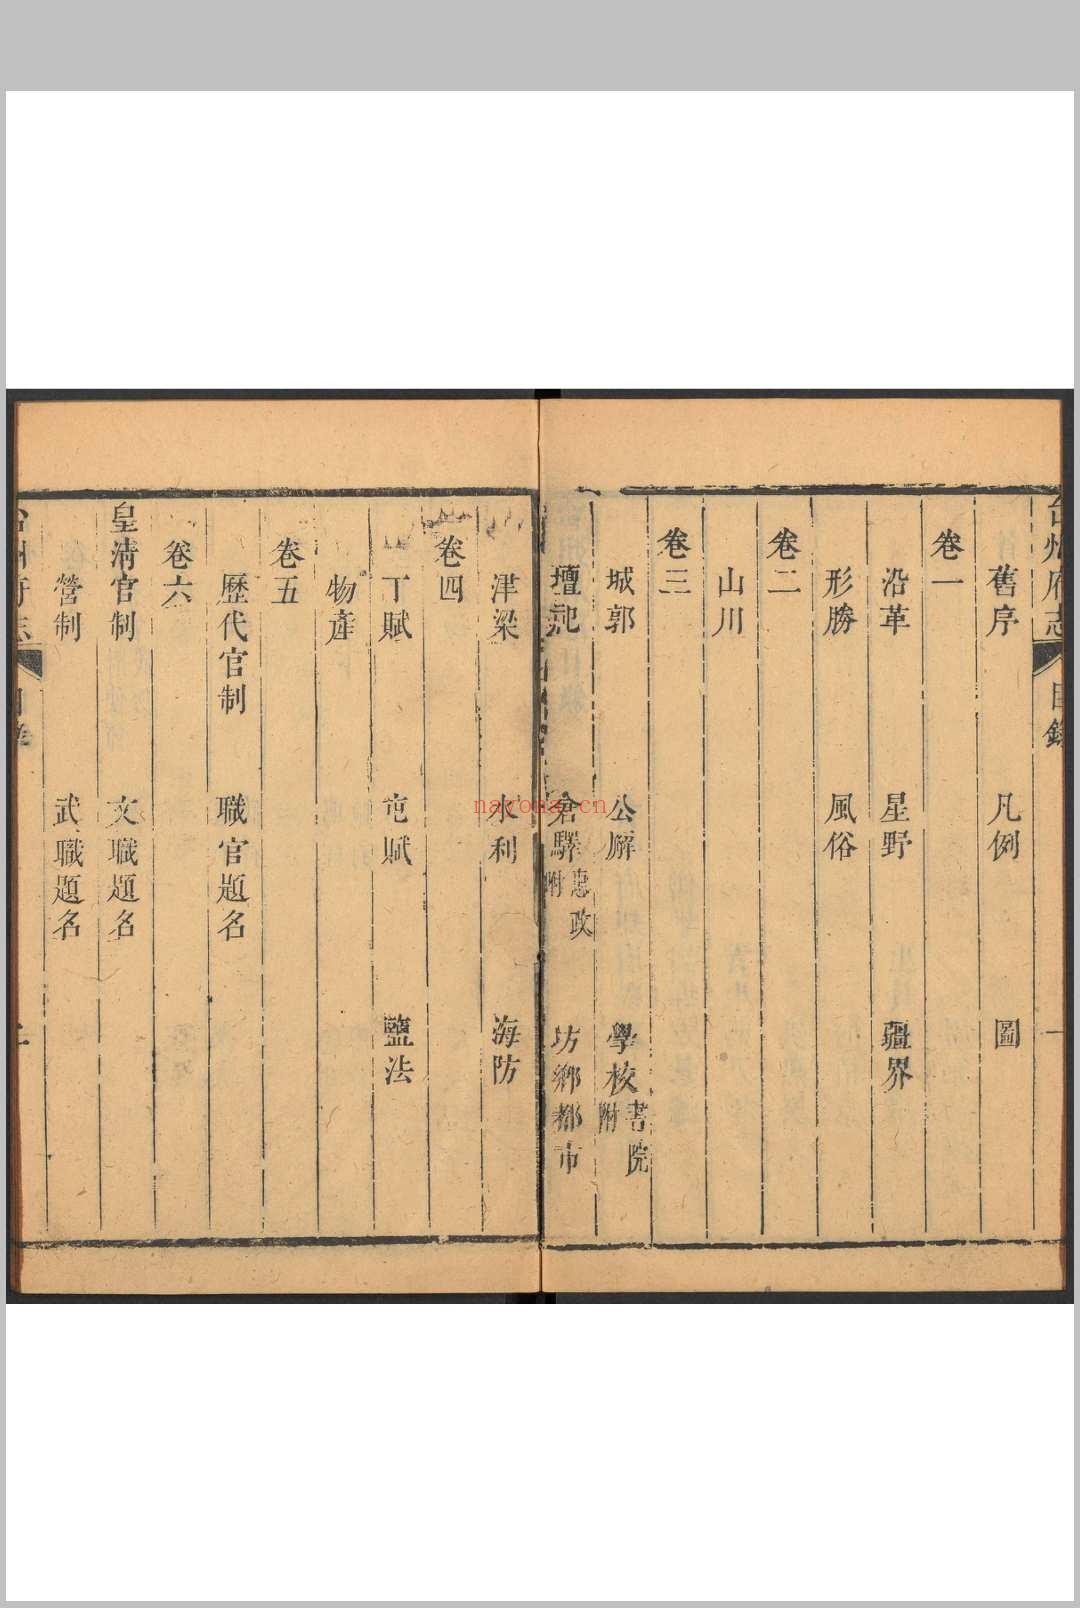 台州府志 目錄 一
舊序 凡例 圖
卷一
沿革 星野 疆界
形勝 風俗
卷二
山川
卷三
城郭 公廨 學校 書院附
壇祀 倉驛 惠政附 坊鄉都市
津梁 水利 海防
卷四
丁賦 屯賦 鹽法
物產
卷五
歷代官制 職官題名
卷六
皇清官制 文職題名
營制 武職題名
台州府志 目錄 二
nayona.cn